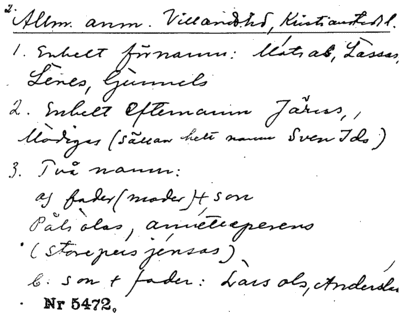 2.
Allm. anm. Villands hd, Kristianstads l.
1. Enkelt förnamn: Matsas, Lassas,
Lènes, Gunnels
2. Enkelt Efternamn Järus,
Modiges (sällan helt namn Sven Ids)
3. Två namn:
a) fader (moder) + son
Påls olas,
(store pers jènsas)
b. son + fader: Lars ols, Anders
Nr 5472.